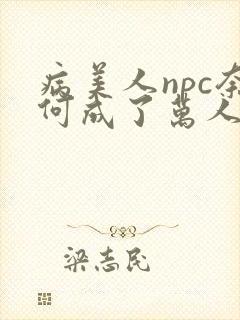 病美人npc奈
何成了萬人
梁志民